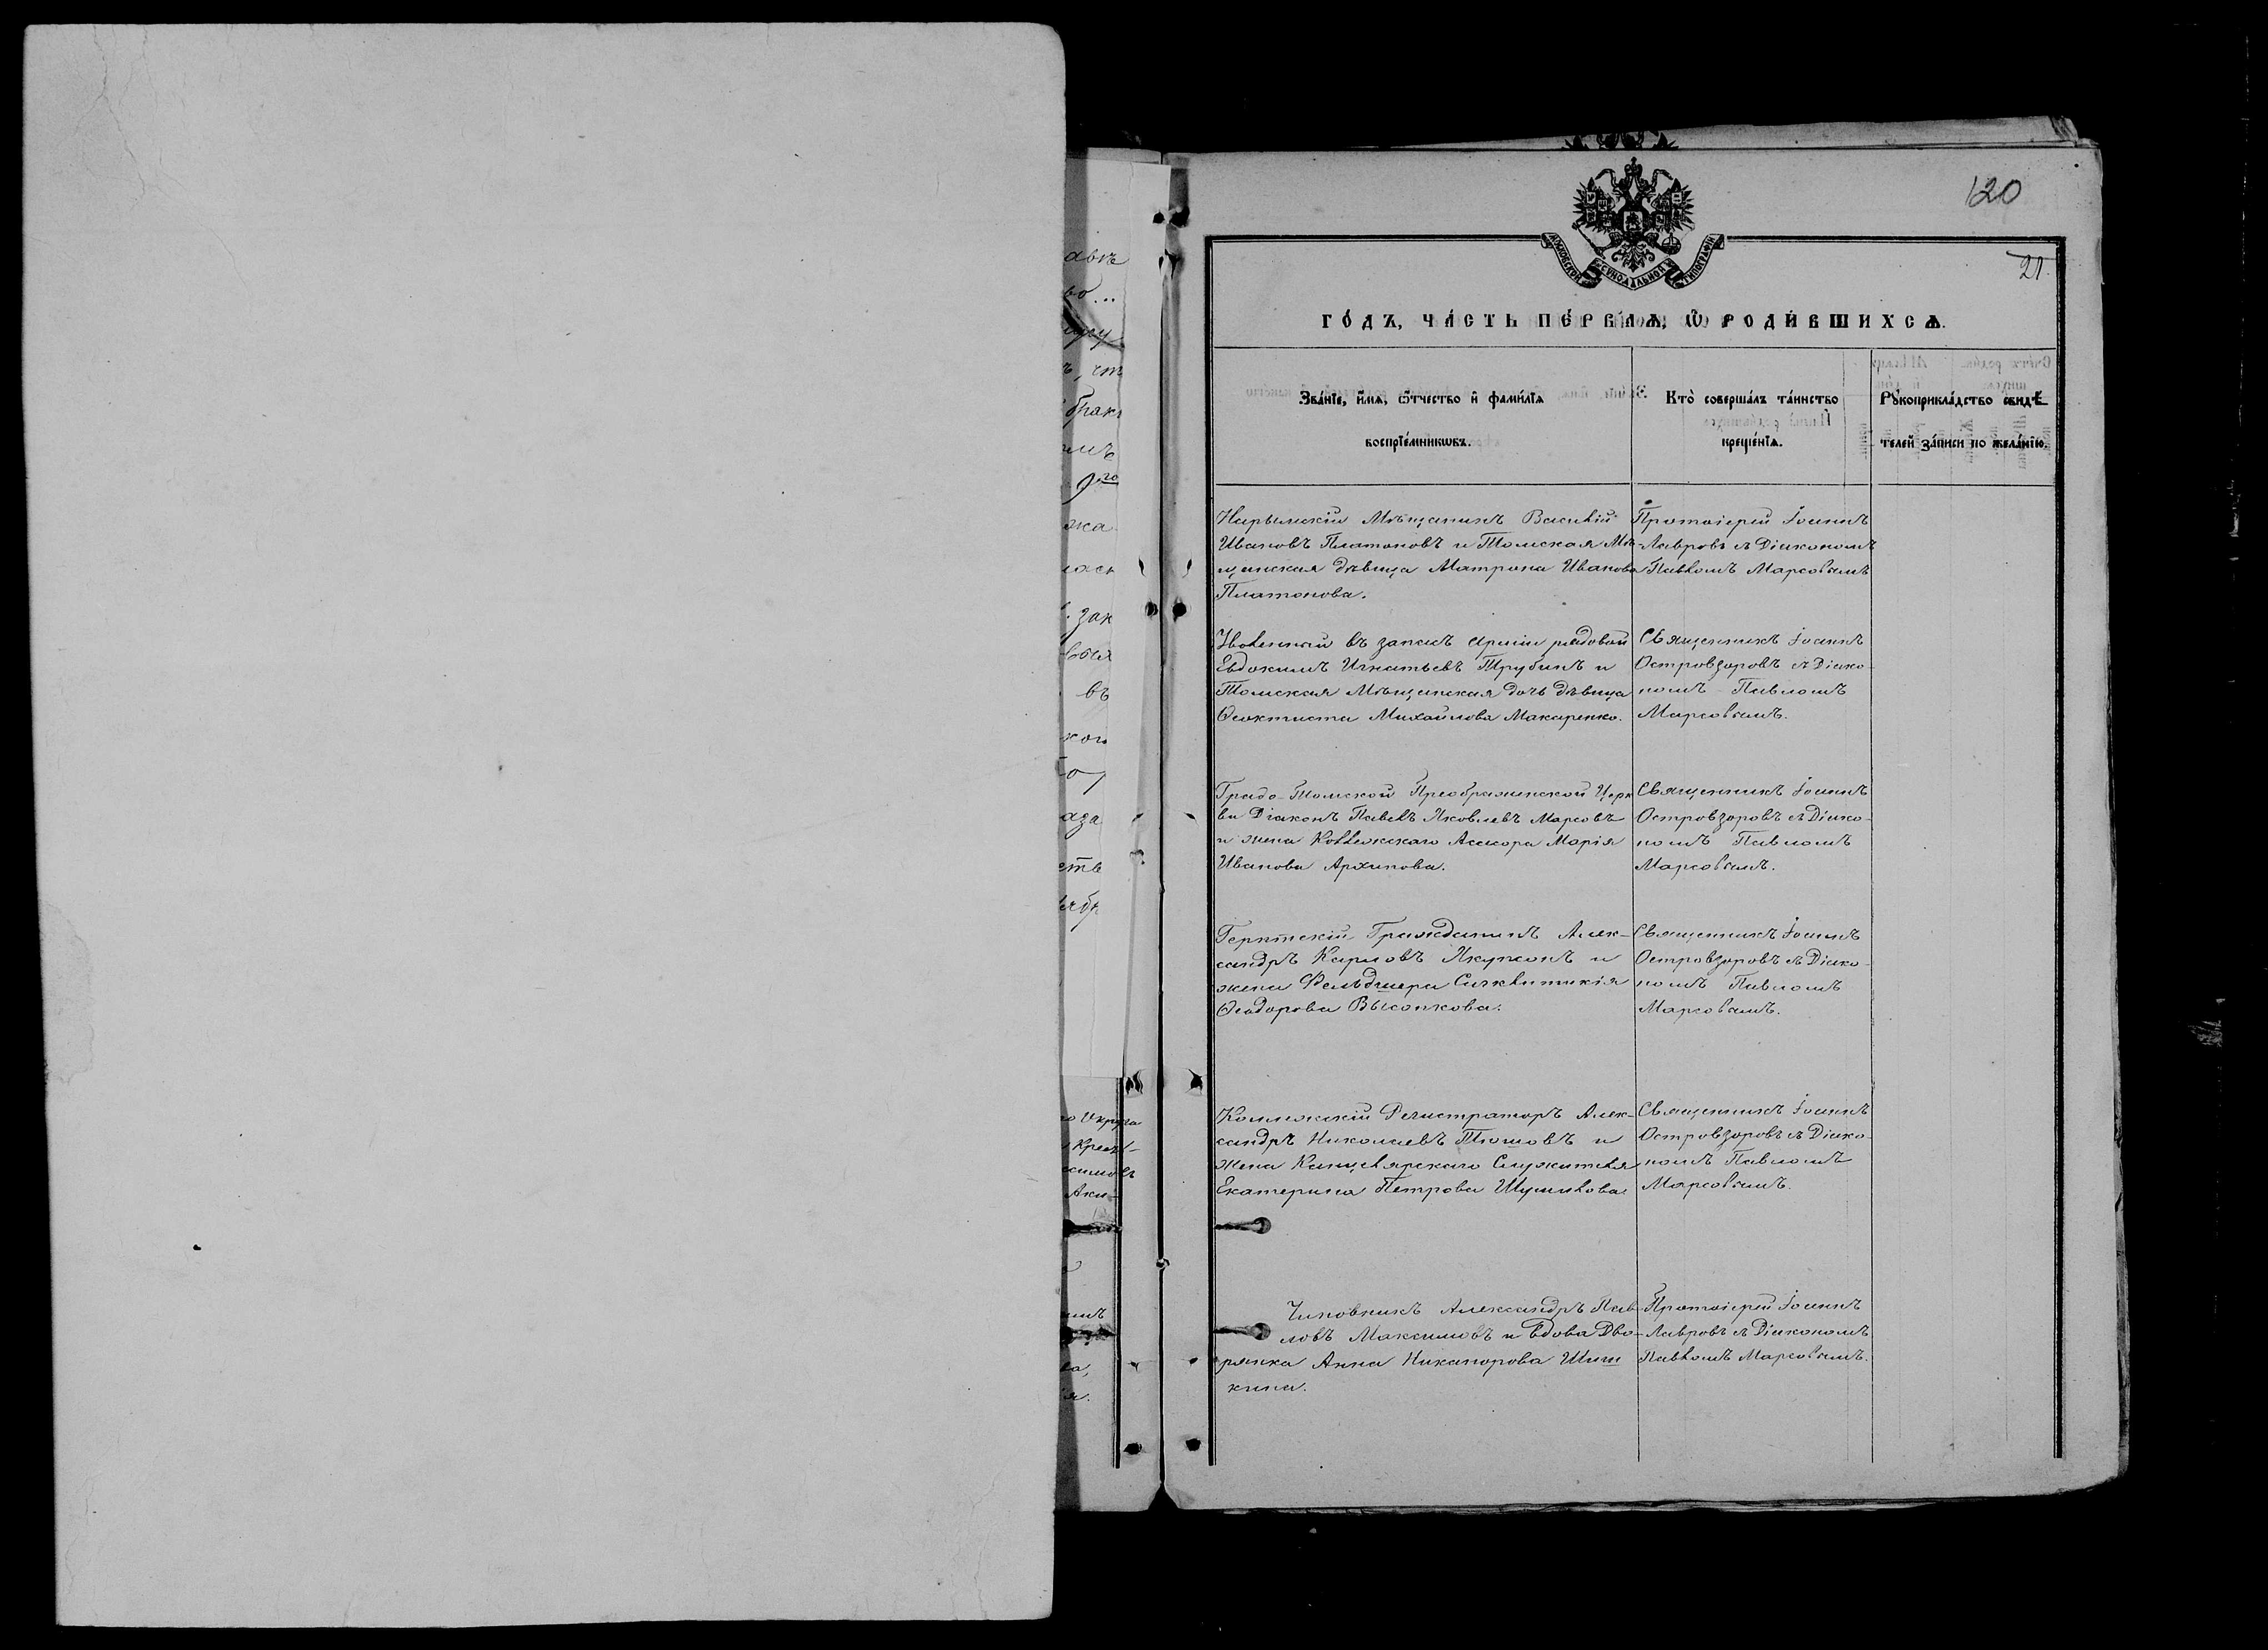 авъ
во...
ъ, чт
браκ
мъ
9го
жа
зак
въ
аза
ств
Округа
Аки-
120
21.
МОСКОВСКОЙ СѴНОДАЛЬНОЙ ТИПОГРАФІИ
ГО́ДЪ, ЧА́СТЬ ПЕ́РВАѦ, Ѡ҆ РОДИ́ВШИХСѦ.
Зва́нїе, и҆́мѧ, ѻ҆́тчество и҆ фами́лїѧ
воспрїе́мникѡвъ.
Кто̀ соверша́лъ та́инство
креще́нїѧ.
Рꙋкоприкла́дство свидѣ́-
телей за́писи по жела́нїю.
Нарымскій Мѣщанинъ Василій
Ивановъ Платоновъ и Томская Мѣ-
щанская дѣвица Матрона Иванова
Платонова.
Протоіерей Іоаннъ
Лавровъ съ Діакономъ
Павломъ Марсовымъ
Уволенный въ запасъ арміи рядовой
Евдокимъ Игнатьевъ Трубинъ и
Томская Мѣщанская дочь дѣвица
Ѳеоктиста Михайлова Макаренко.
Священникъ Іоаннъ
Островзоровъ съ Діако-
номъ Павломъ
Марсовымъ.
Градо-Томской Преображенской Церк
ви Діаконъ Павелъ Яковлевъ Марсовъ
и жена Коллежскаго Асесора Марія
Иванова Архипова.
Священникъ Іоаннъ
Островзоровъ съ Діако-
номъ Павломъ
Марсовымъ.
Гражданинъ Алек-
сандръ Карловъ и
жена Фельдшера Синклитикія
Ѳеодорова Высоткова.
Священникъ Іоаннъ
Островзоровъ съ Діако-
номъ Павломъ
Марсовымъ.
Коллежскій Регистраторъ Алек-
сандръ Николаевъ Тюшовъ и
жена Канцелярскаго Служителя
Екатерина Петрова Шумилова
Священникъ Іоаннъ
Островзоровъ съ Діако-
номъ Павломъ
Марсовымъ.
Чиновникъ Александръ Пав-
ловъ Максимовъ и вдова Дво-
рянка Анна Никанорова Шиш
кина.
Протоіерей Іоаннъ
Лавровъ съ Діакономъ
Павломъ Марсовымъ.